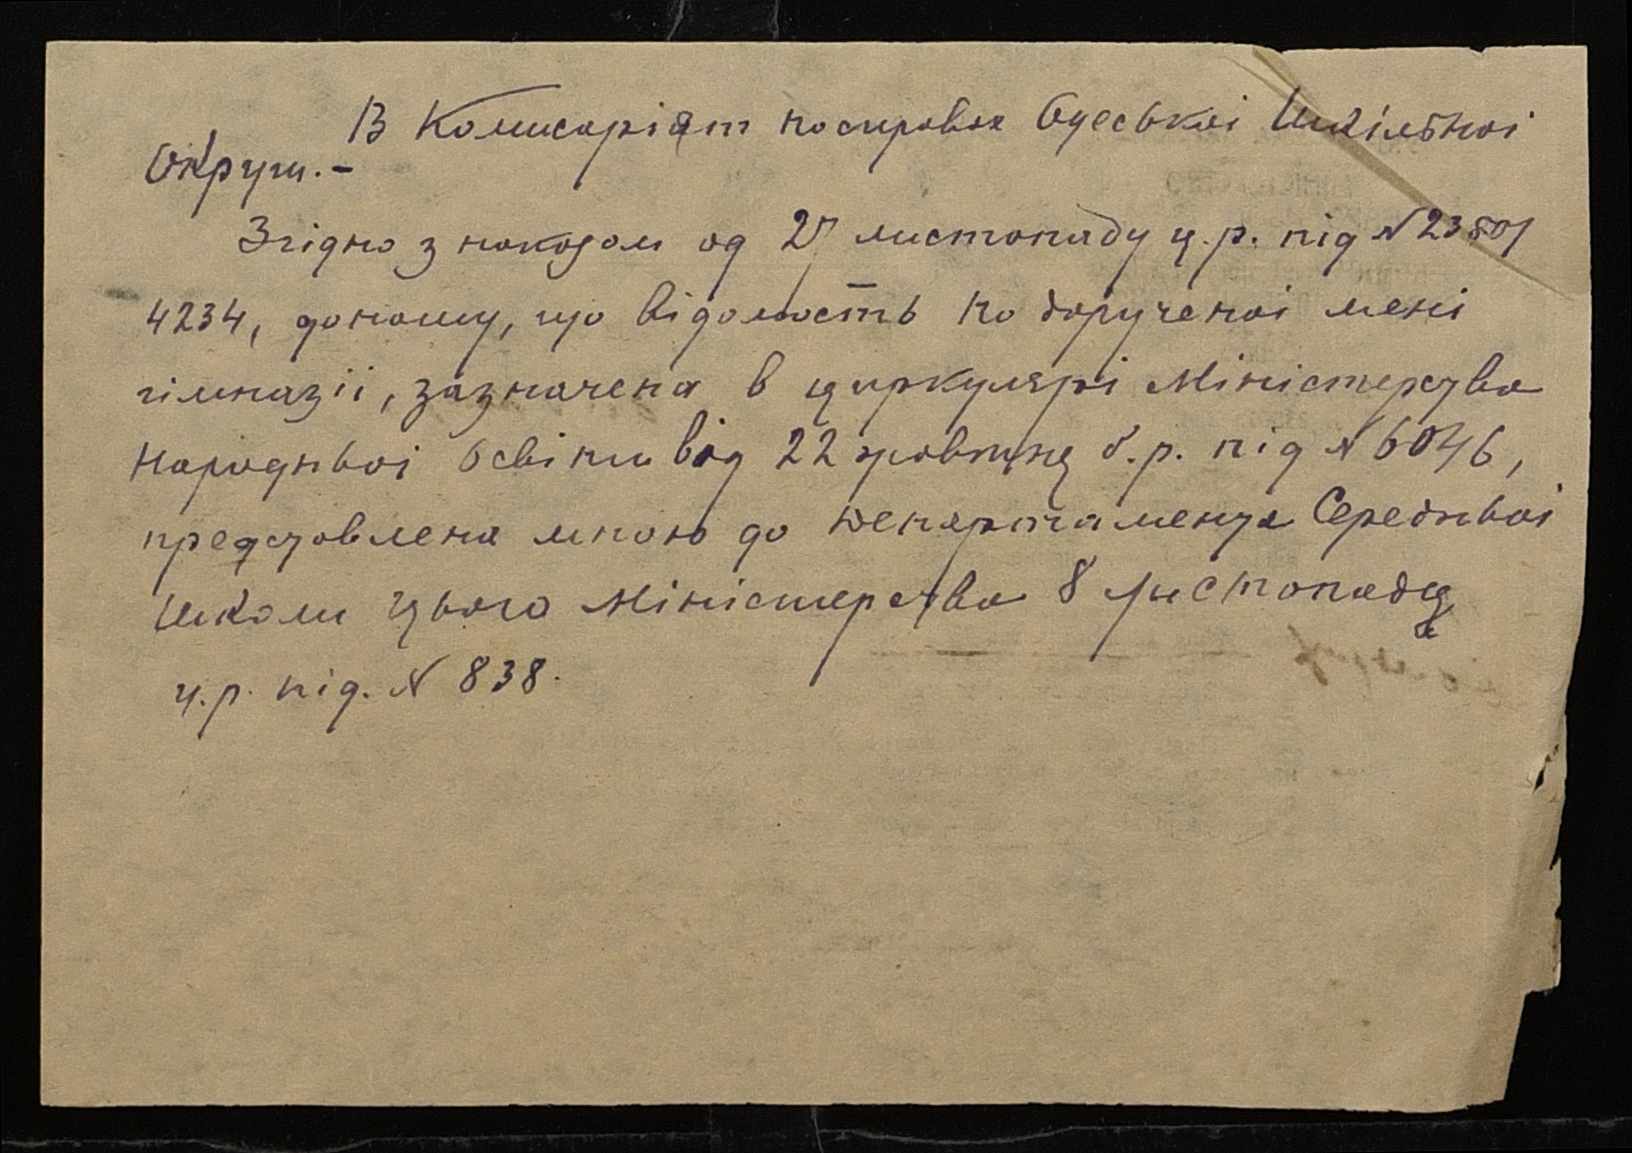 В Комисаріят по справах Одеської Шкільної
Округи.-
Згідно з наказом од 27 листопаду ц.р. під №23801
4234, доношу, що відомость по дорученоі мені
гімназіі, зазначена в циркулярі Міністерства
Народньоі Освіти від 22 жовтня б.р. під №6046,
представлена мною до Департамента Середньоі
Школи цього Міністерства 8 листопада
ц.р. під. № 838.